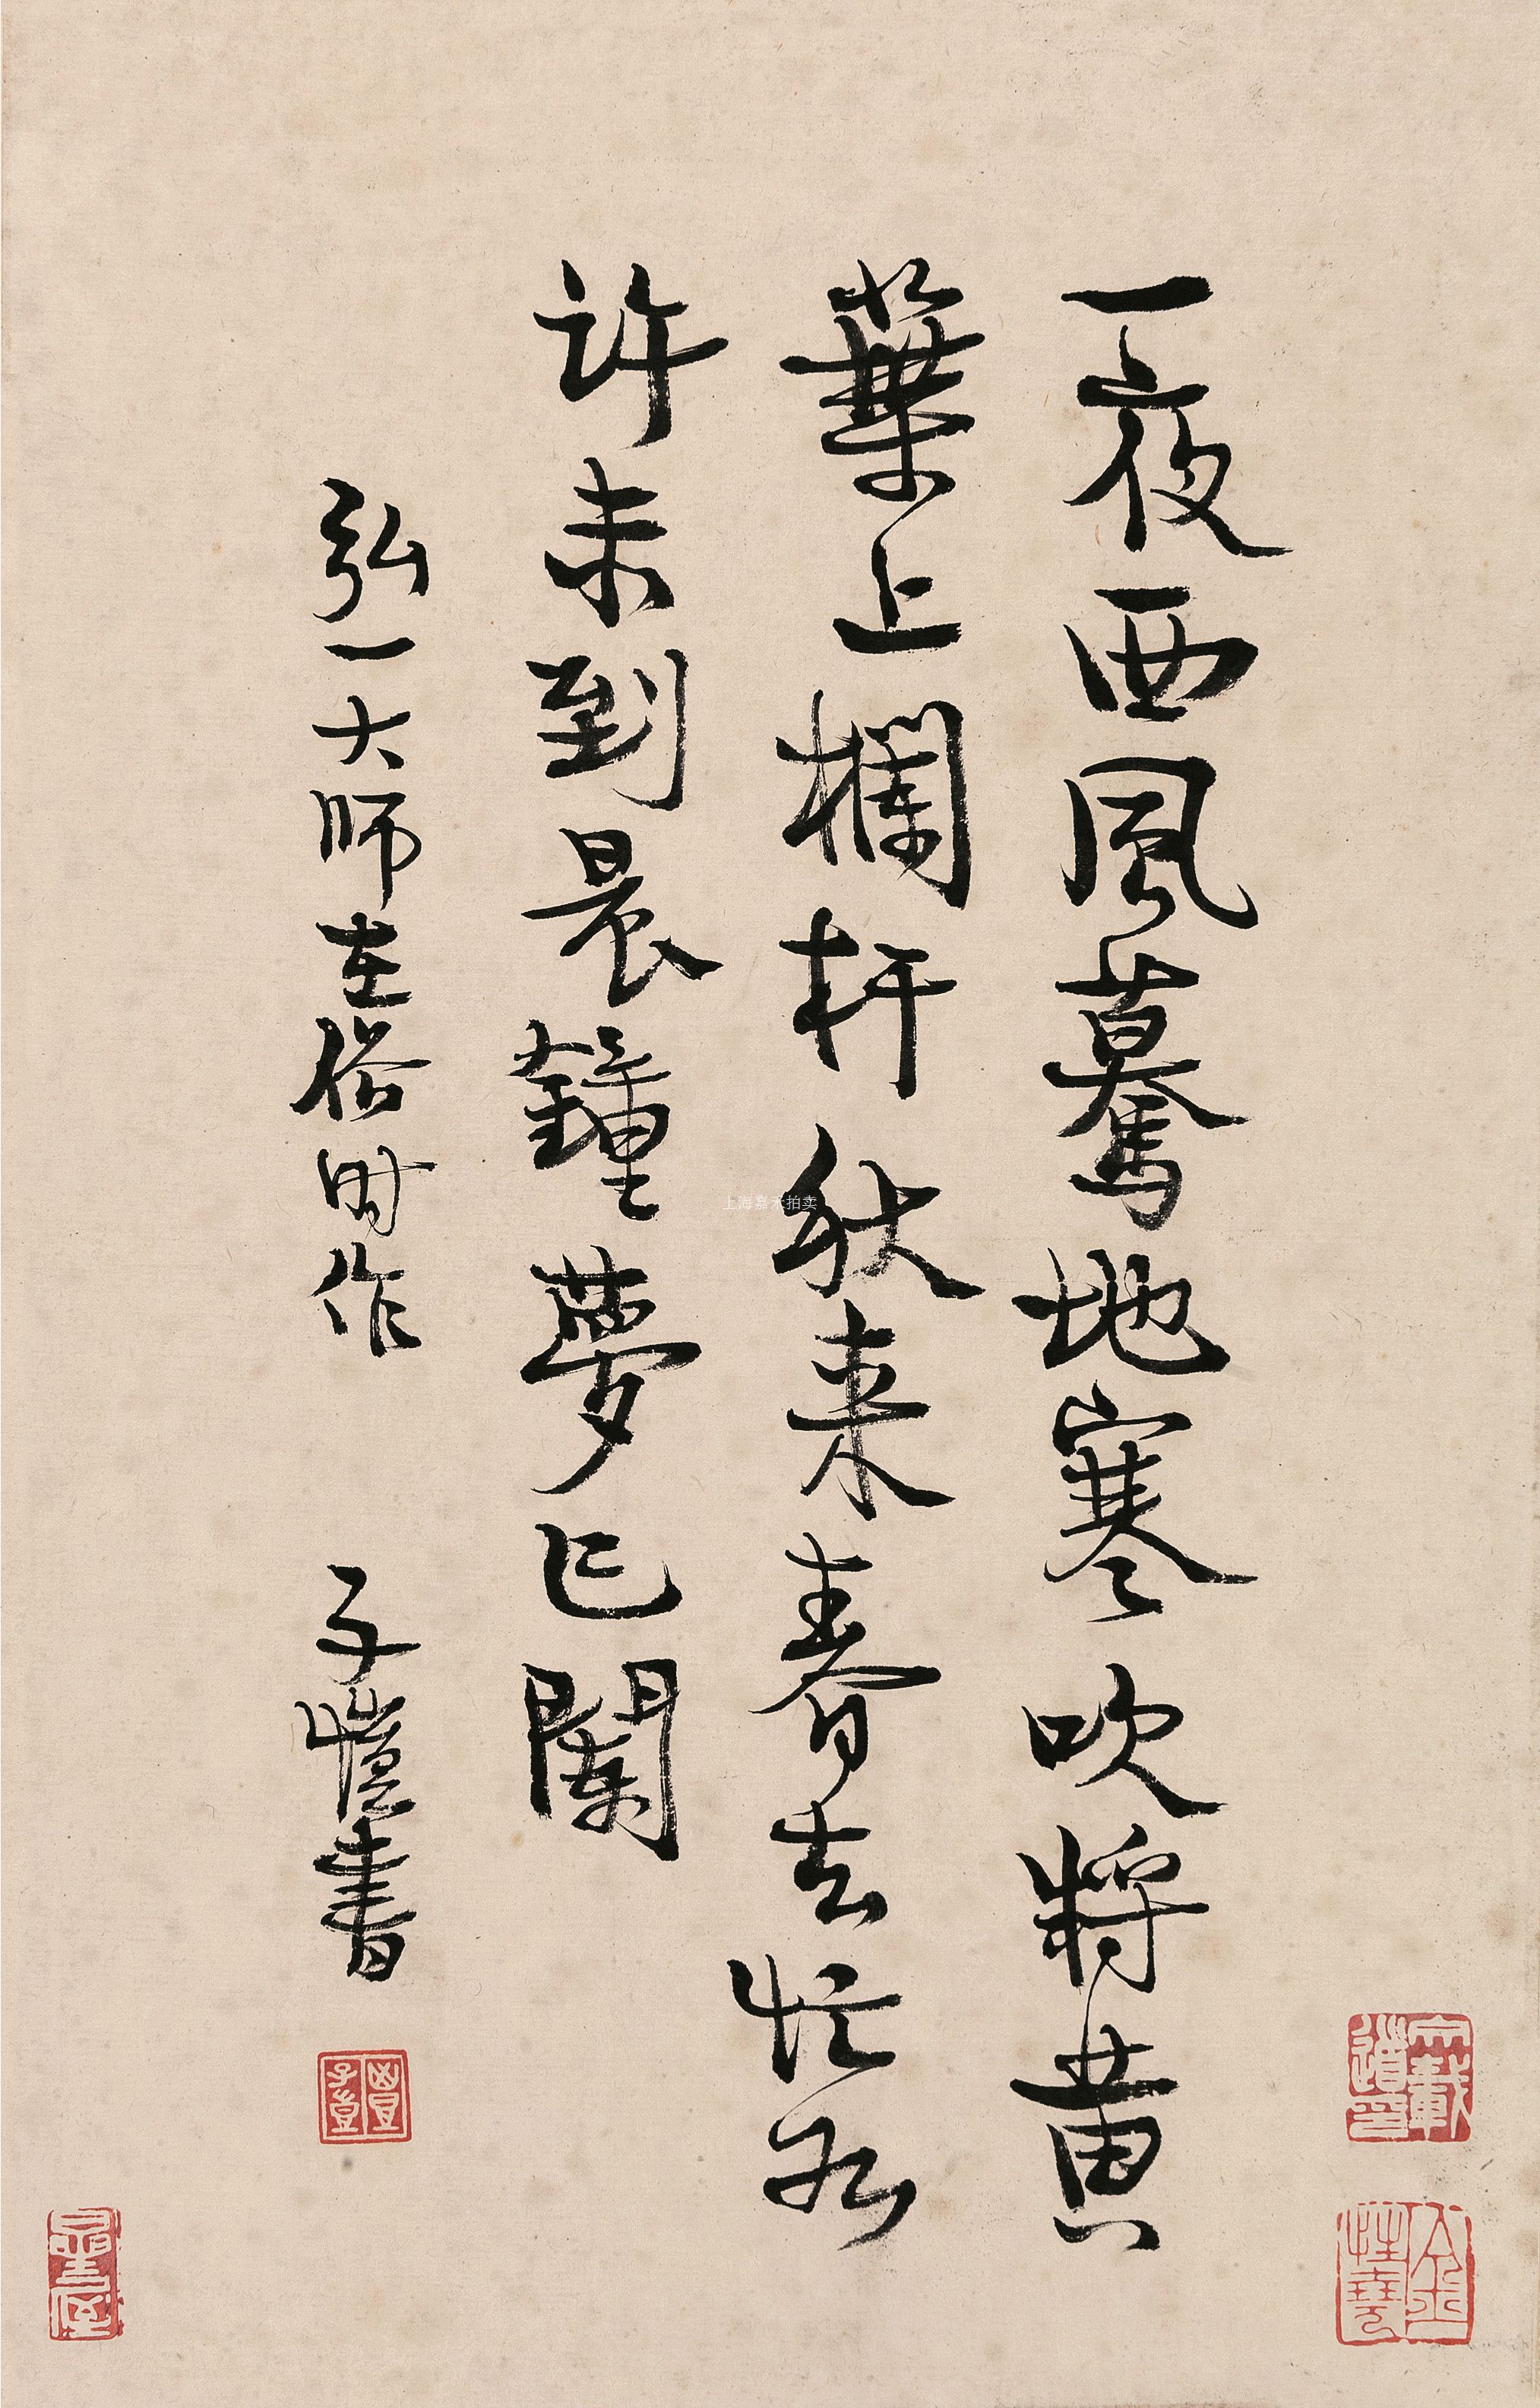 一夜西風驀地寒吹將黃
葉上欄杆秋来春去忙如
許未到晨鐘夢已闌
弘一大师在俗时作
子愷書
豐子愷
上海嘉禾拍卖